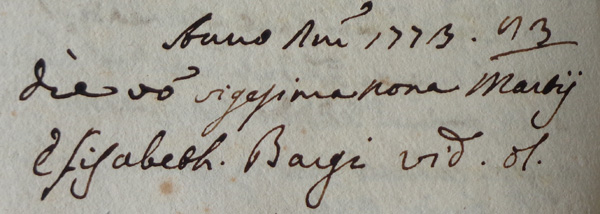 Anno Dni 1773. 93
die vo vigesima nona Martij
Elisabeth. Bargi vid. ol.